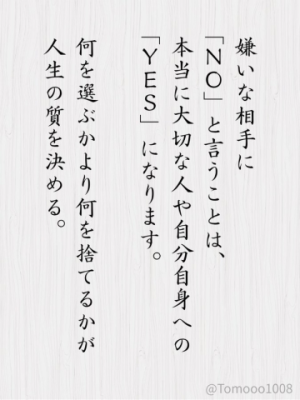 嫌いな相手に
「NO」と言うことは、
本当に大切な人や自分自身への
「YES」になります。
何を選ぶかより何を捨てるかが
人生の質を決める。
@Tomooo1008